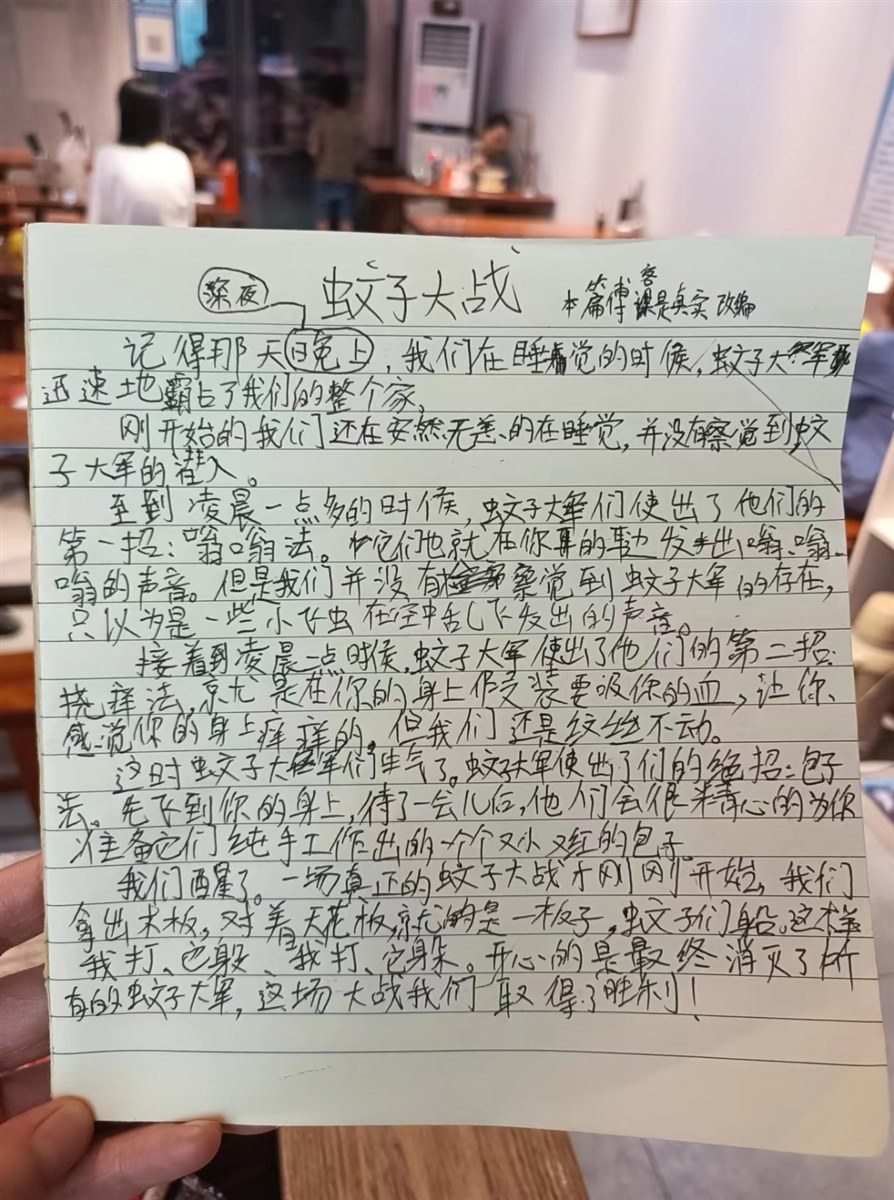 深夜 蚊子大战 本篇博客课是真实改编
记得那天晚上,我们在睡觉的时候,蚊子大军
迅速地霸占了我们的整个家,
刚开始的我们还在安然无恙的在睡觉,并没有察觉到蚊
子大军的潜入。
至到凌晨一点多的时候,蚊子大军们使出了他们的
第一招:嗡嗡法。它们也就在你耳的边发出嗡嗡
嗡的声音。但是我们并没有察觉到蚊子大军的存在,
只以为是一些小飞虫在空中乱飞发出的声音。
接着到凌晨一点时候,蚊子大军使出了他们的第二招:
挠痒法,就是在你的身上假装要吸你的血,让你
感觉你的身上痒痒的。但我们还是纹丝不动。
这时蚊子大军们生气了。蚊子大军使出了们的绝招:包子
法。先飞到你的身上,待了一会儿后,他们会很精心的为你
准备它们纯手工作出的一个个又小又红的包子。
我们醒了。一场真正的蚊子大战才刚刚开始,我们
拿出木板,对着天花板,就的是一板子,蚊子们躲。这样
我打、它躲、我打、它躲。开心的是最终消灭了所
有的蚊子大军,这场大战我们取得了胜利!